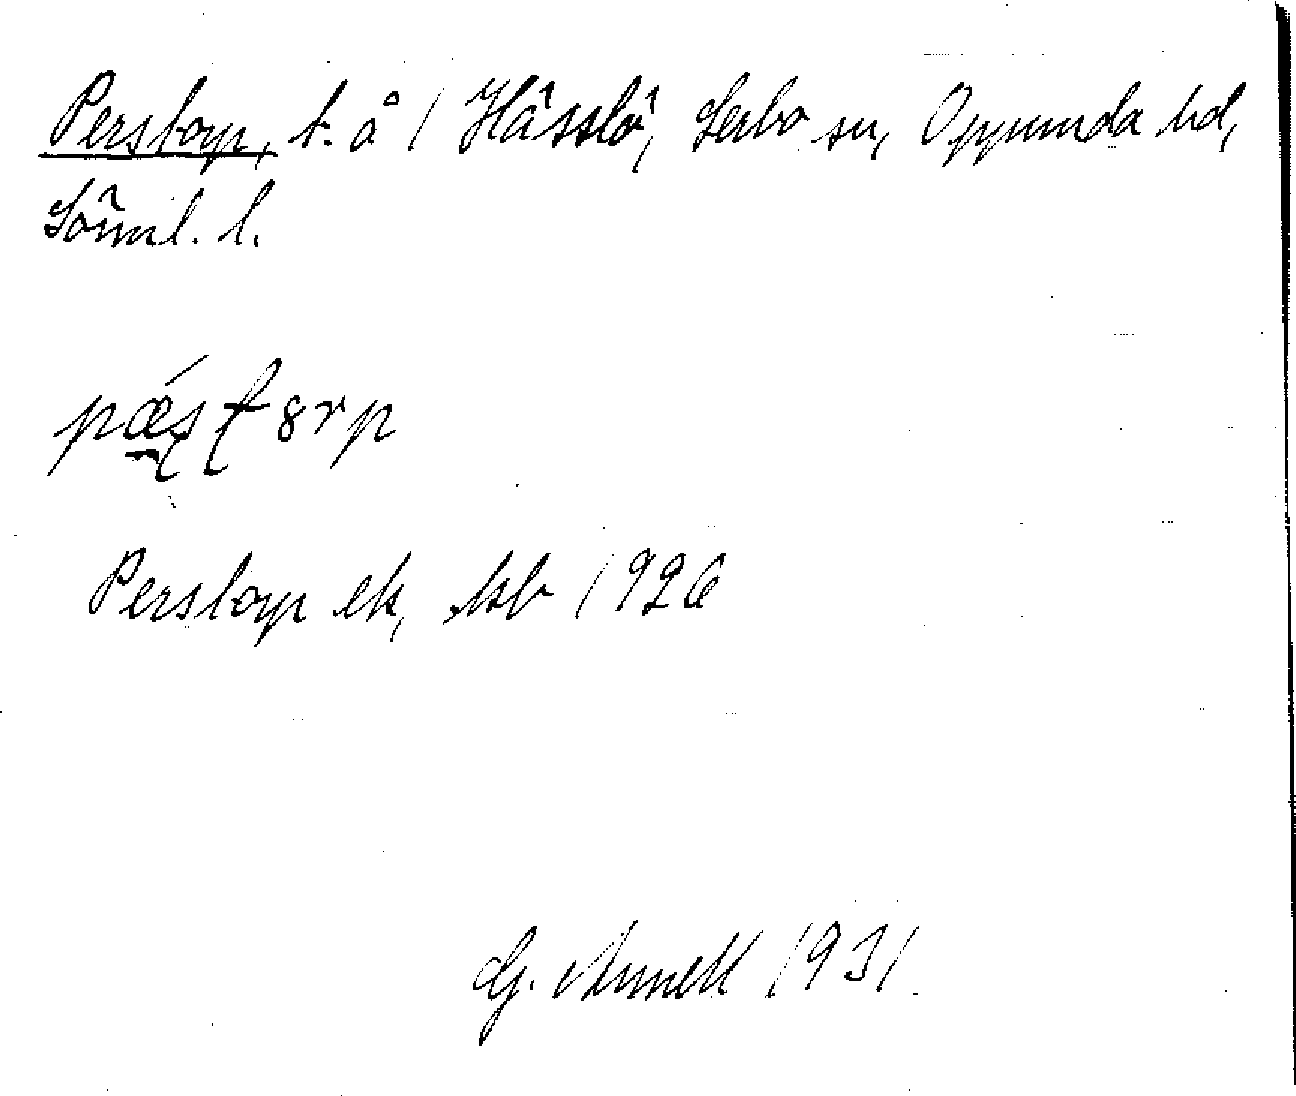 Perstorp, t. å 1 Hässlö, Lerbo sn, Oppunda hd,
Sörml. l.
pǽṣƭ8rp
Perstorp ek, kb 1926
G. Annell 1931